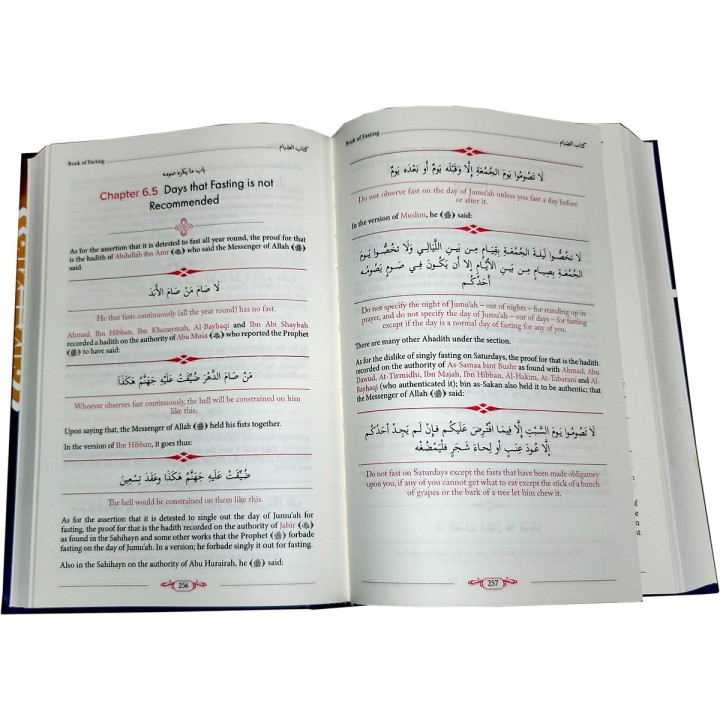 Book of Fasting
كتاب الصيام
باب ما يكره صومه
Chapter 6.5 Days that Fasting is not
Recommended
As for the assertion that it is detested to fast all year round, the proof for that
is the hadith of Abdullah ibn Amr (ﷺ) who said the Messenger of Allah (ﷺ)
said:
لَا صَامَ مَنْ صَامَ الْأَبَدَ
He that fasts continuously (all the year round) has no fast.
Ahmad, Ibn Hibban, Ibn Khuzaymah, Al-Bayhaqi and Ibn Abi Shaybah
recorded a hadith on the authority of Abu Musa who reported the Prophet
(ﷺ) to have said:
مَنْ صَامَ الدَّهْرَ ضُيِّقَتْ عَلَيْهِ جَهَنَّمُ هَكَذَا
Whoever observes fast continuously, the hell will be constrained on him
like this.
Upon saying that, the Messenger of Allah (ﷺ) held his fists together.
In the version of Ibn Hibban, it goes thus:
ضُيِّقَتْ عَلَيْهِ جَهَنَّمُ هَكَذَا وَعَقَدَ تِسْعِينَ
The hell would be constrained on them like this.
As for the assertion that it is detested to single out the day of Jumu'ah for
fasting, the proof for that is the hadith recorded on the authority of Jabir
as found in the Sahihayn and some other works that the Prophet (ﷺ) forbade
fasting on the day of Jumu'ah. In a version; he forbade singly it out for fasting.
Also in the Sahihayn on the authority of Abu Hurairah, he (ﷺ) said:
256
Book of Fasting
كتاب الصيام
لَا تَصُومُوا يَوْمَ الْجُمُعَةِ إِلَّا وَقَبْلَه يَومٌ أَوْ بَعْدَه يَومٌ
Do not observe fast on the day of Jumu'ah unless you fast a day before
or after it.
In the version of Muslim, he (ﷺ) said:
لَا تَخُصُّوا لَيلَةَ الْجُمُعَةِ بِقِيَامٍ مِن بَيْنِ اللَّيَالِي وَلَا تَخُصُّوا يَومَ
الْجُمُعَةِ بِصِيامٍ مِن بَيْنِ الأَيَّامِ إِلا أَن يَكُونَ فِي صَومٍ يَصُومُه
أَحَدُكُم
Do not specify the night of Jumu'ah – out of nights – for standing up in
prayer, and do not specify the day of Jumu'ah – out of days – for fasting
except if the day is a normal day of fasting for any of you.
There are many other Ahadith under the section.
As for the dislike of singly fasting on Saturdays, the proof for that is the hadith
recorded on the authority of As-Samaa bint Bushr as found with Ahmad, Abu
Dawud, At-Tirmidhi, Ibn Majah, Ibn Hibban, Al-Hakim, At-Tabarani and Al-
Bayhaqi (who authenticated it); bin as-Sakan also held it to be authentic; that
the Messenger of Allah (ﷺ) said:
لَا تَصُومُوا يَومَ السَّبْتِ إِلَّا فِيمَا افْتُرِضَ عَلَيكُم فَإِن لَم يَجِدْ أَحَدُكُم
إِلَّا عُودَ عِنَبٍ أَو لِحَاءَ شَجَرٍ فَليَمْضُغْه
Do not fast on Saturdays except the fasts that have been made obligatory
upon you, if any of you cannot get what to eat except the stick of a bunch
of grapes or the bark of a tree let him chew it.
257